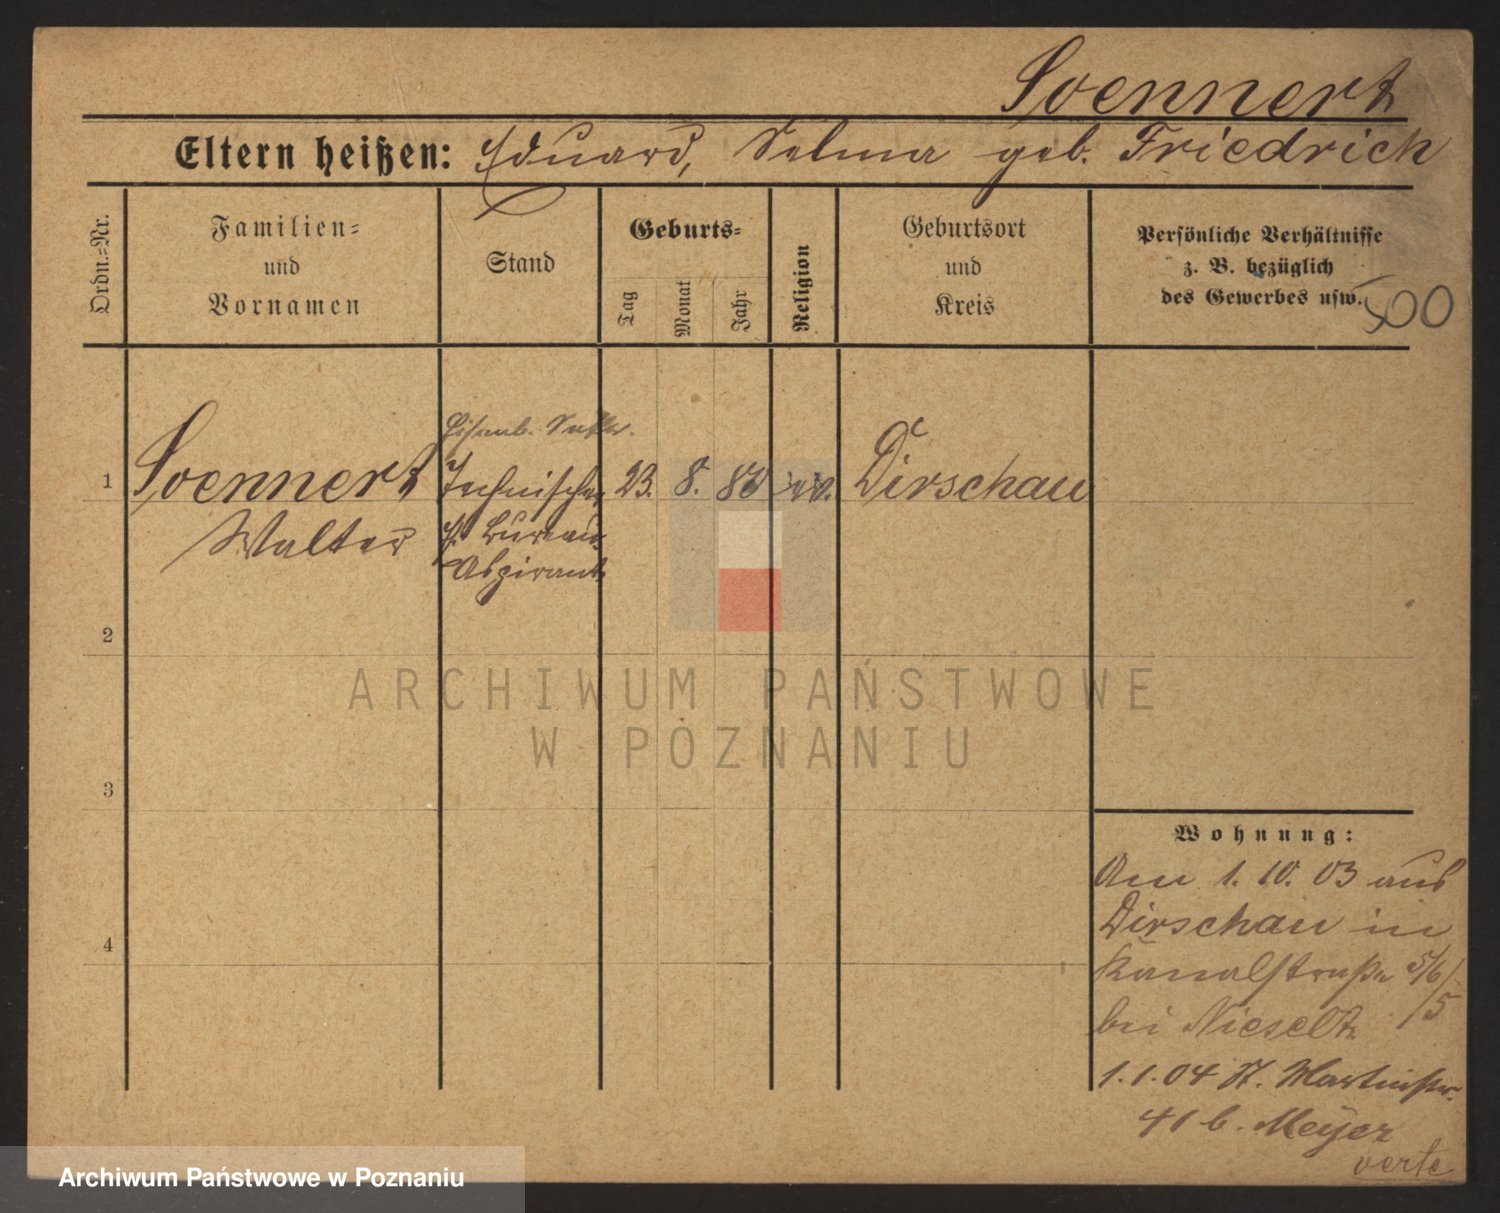 Soennert
Eltern heißen: Eduard, Selma geb. Friedrich
Ordn.-Nr.
Familien-
und
Vornamen
Stand
Geburts-
Tag
Monat
Jahr
Religion
Geburtsort
und
Kreis
Persönliche Verhältnisse
z. B. bezüglich
des Gewerbes usw.
500
Eisenb. Sekr.
1 Soennert Technischer 23. 8. 80 ev. Dirschau
Walter
Bureau
Aspirant
2
3
4
ARCHIWUM PAŃSTWOWE
W POZNANIU
Wohnung:
Am 1. 10. 03 aus
Dirschau in
Kanalstraße 5/6/5
bei Nieselt
1.1.04 St. Martinstr.
41 b. Meyer
verte
Archiwum Państwowe w Poznaniu